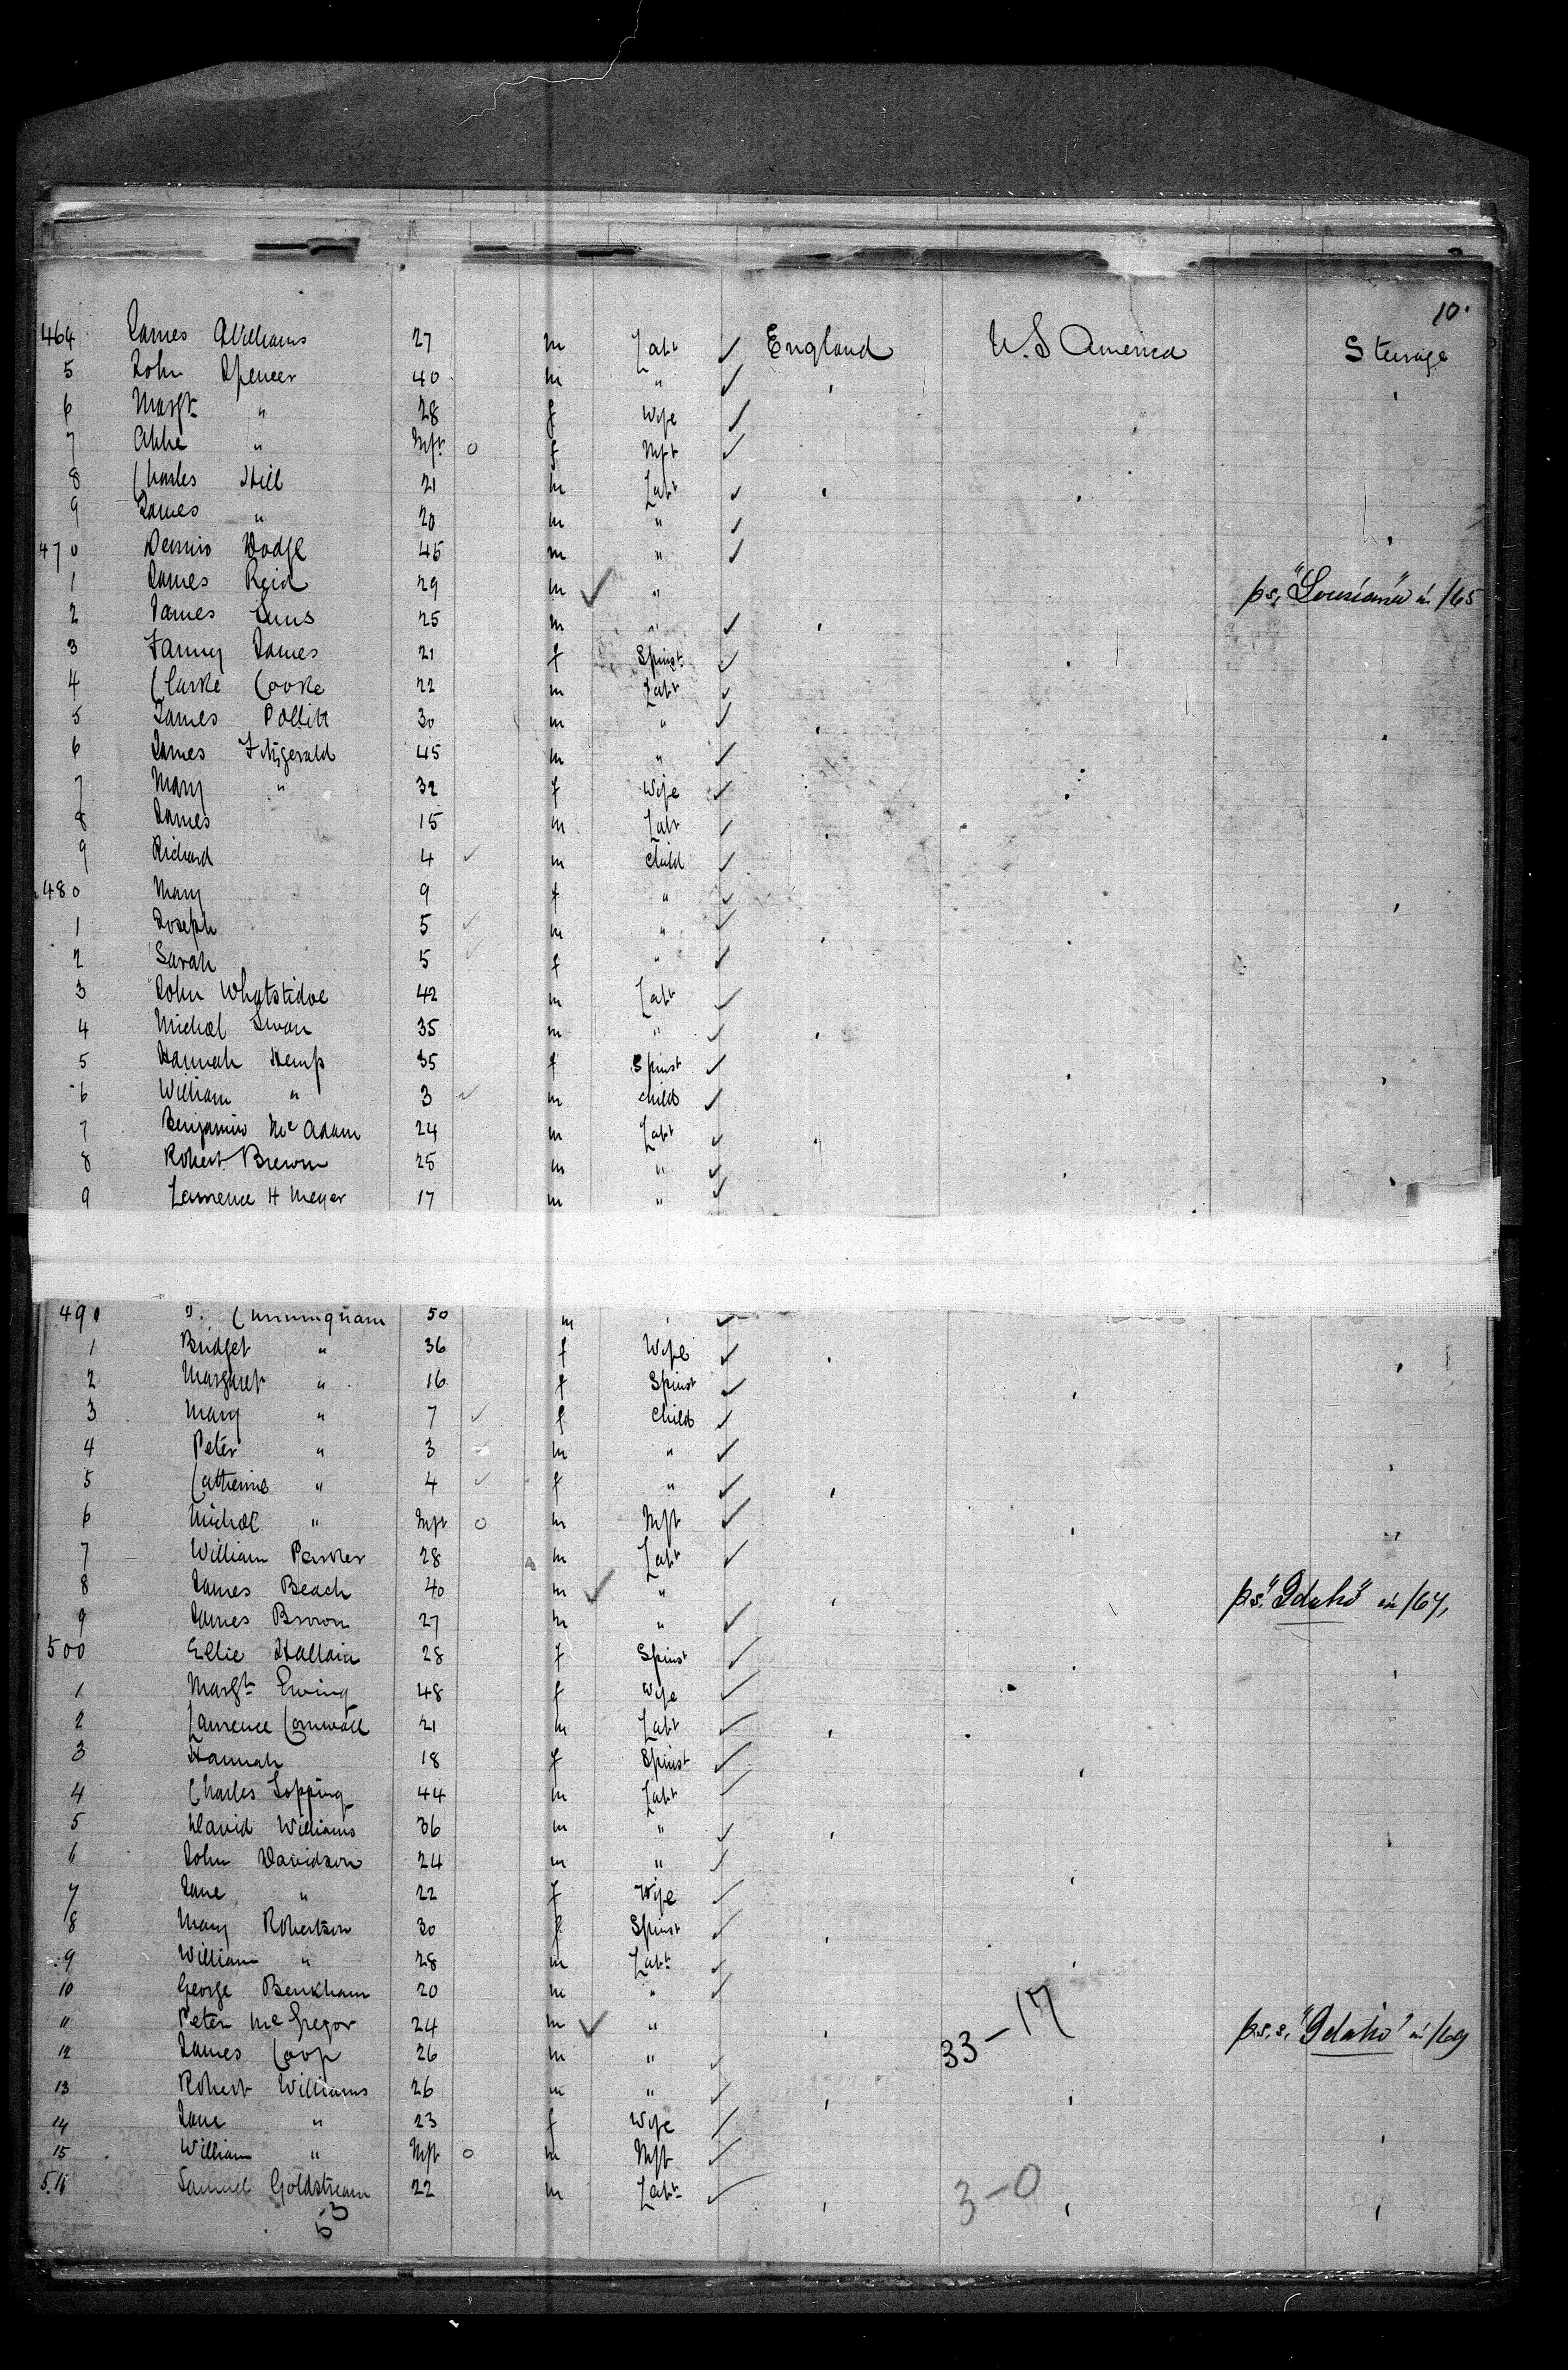 10.
464 James Williams 27 m Labr ✓ England U.S America Steerage
5 John Spencer 40 m " ✓
6 Margt " 28 f Wife ✓
7 " Inft o f Inft ✓
8 Charles Hill 21 m Labr ✓
9 James " 20 m " ✓
470 Dennis Dodge 45 m " ✓
1 James Reid 29 m ✓ " ps, "Louisiana" in /65
2 James 25 m " ✓
3 Fanny James 21 f Spinst ✓
4 Clarke Cooke 22 m Labr ✓
5 James Pollitt 30 m " ✓
6 James Fitzgerald 45 m " ✓
7 Mary " 32 f Wife ✓
8 James 15 m Labr ✓
9 Richard 4 ✓ m Child ✓
480 Mary 9 f " ✓
1 Joseph 5 ✓ m " ✓
2 Sarah 5 ✓ f " ✓
3 John 42 m Labr ✓
4 Michael Swan 35 m " ✓
5 Hannah Kemp 35 f Spinst ✓
6 William " 3 ✓ m Child ✓
7 Benjamin McAdam 24 m Labr ✓
8 Robert Brown 25 m " ✓
9 Lawrence H Meyer 17 m " ✓
490 Cunningham 50 m ✓
1 Bridget " 36 f Wife ✓
2 Margaret " 16 f Spinst ✓
3 Mary " 7 ✓ f Child ✓
4 Peter " 3 ✓ m " ✓
5 Catherine " 4 ✓ f " ✓
6 Michael " Inft o m Inft ✓
7 William Parker 28 m Labr ✓
8 James Beach 40 m ✓ " ps. "Idaho" in /67,
9 James Brown 27 m " ✓
500 Ellie Hallam 28 f Spinst ✓
1 Margt Ewing 48 f Wife ✓
2 Lawrence Cornwall 21 m Labr ✓
3 Hannah 18 f Spinst ✓
4 Charles Topping 44 m Labr ✓
5 David Williams 36 m " ✓
6 John Davidson 24 m " ✓
7 Jane " 22 f Wife ✓
8 Mary Robertson 30 f Spinst ✓
9 William " 28 m Labr ✓
10 George Benkham 20 m " ✓
11 Peter McGregor 24 m ✓ " 33-17 ps.s. "Idaho" in /69
12 James Coop 26 m " ✓
13 Robert Williams 26 m " ✓
14 Jane " 23 f Wife ✓
15 William " Inft o m Inft ✓
516 Samuel Goldstream 22 m Labr ✓ 3-0
53